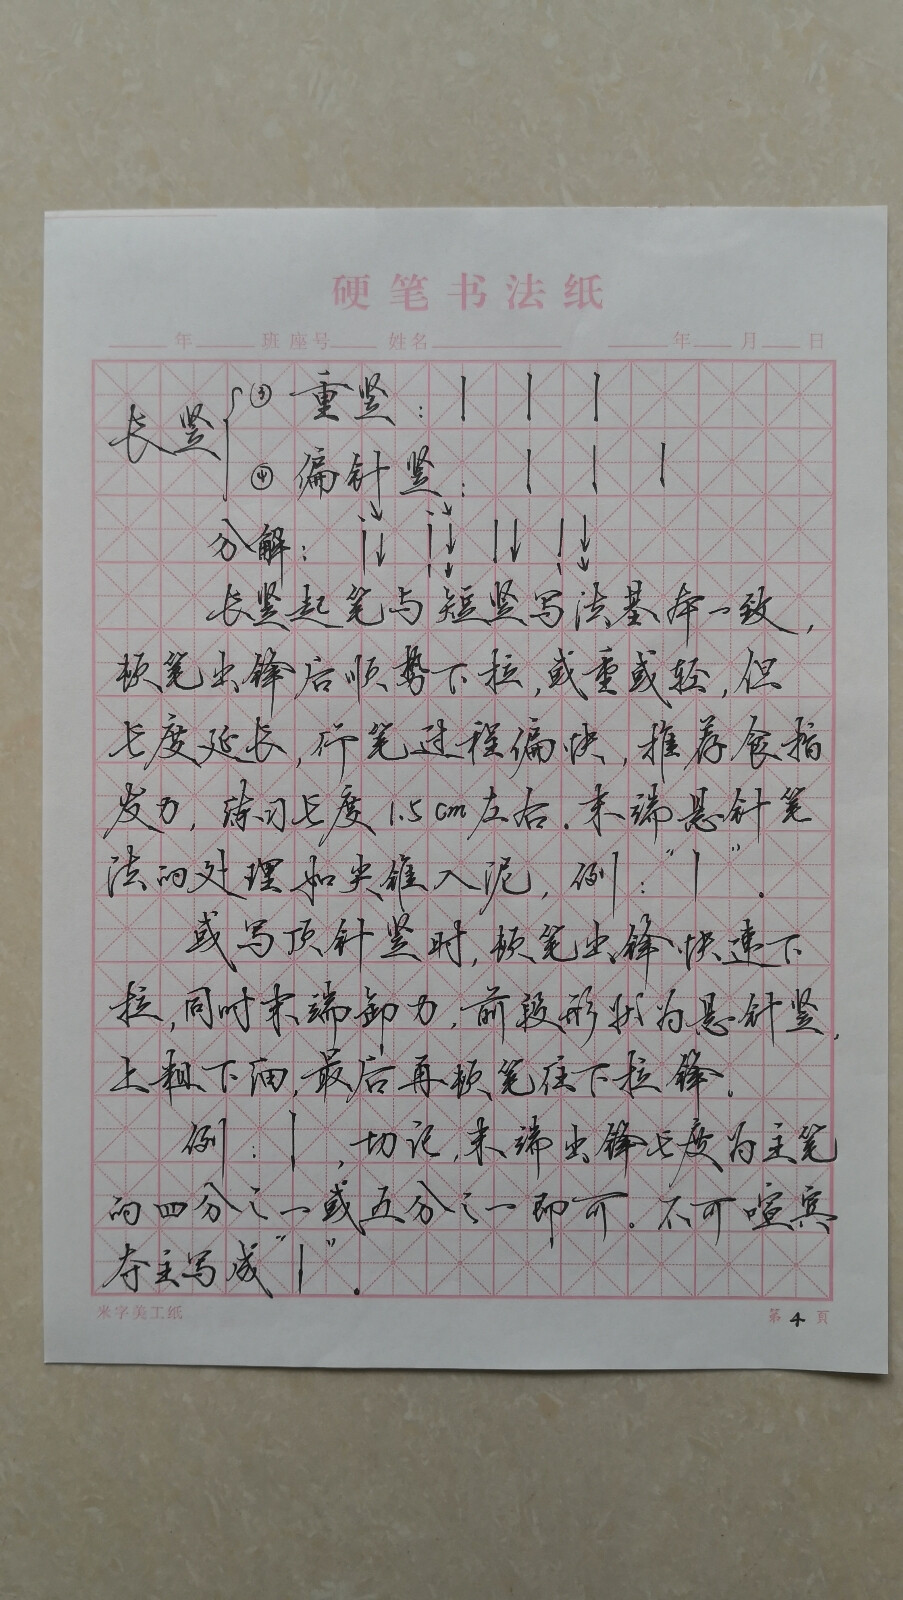 硬笔书法纸
年 班 座号 姓名 年 月 日
长竖
③ 重竖：
④ 偏针竖：
分解：
长竖起笔与短竖写法基本一致，
顿笔出锋后顺势下拉，或重或轻，但
长度延长，行笔过程偏快，推荐食指
发力，练习长度1.5cm左右。末端悬针笔
法的处理如尖锥入泥，例：“丨”。
或写顶针竖时，顿笔出锋快速下
拉，同时末端卸力，前段形状为悬针竖，
上粗下细，最后再顿笔往下拉锋。
例：丨，切记，末端出锋长度为主笔
的四分之一或五分之一即可。不可喧宾
夺主写成“丨”。
米字美工纸
第 4 頁